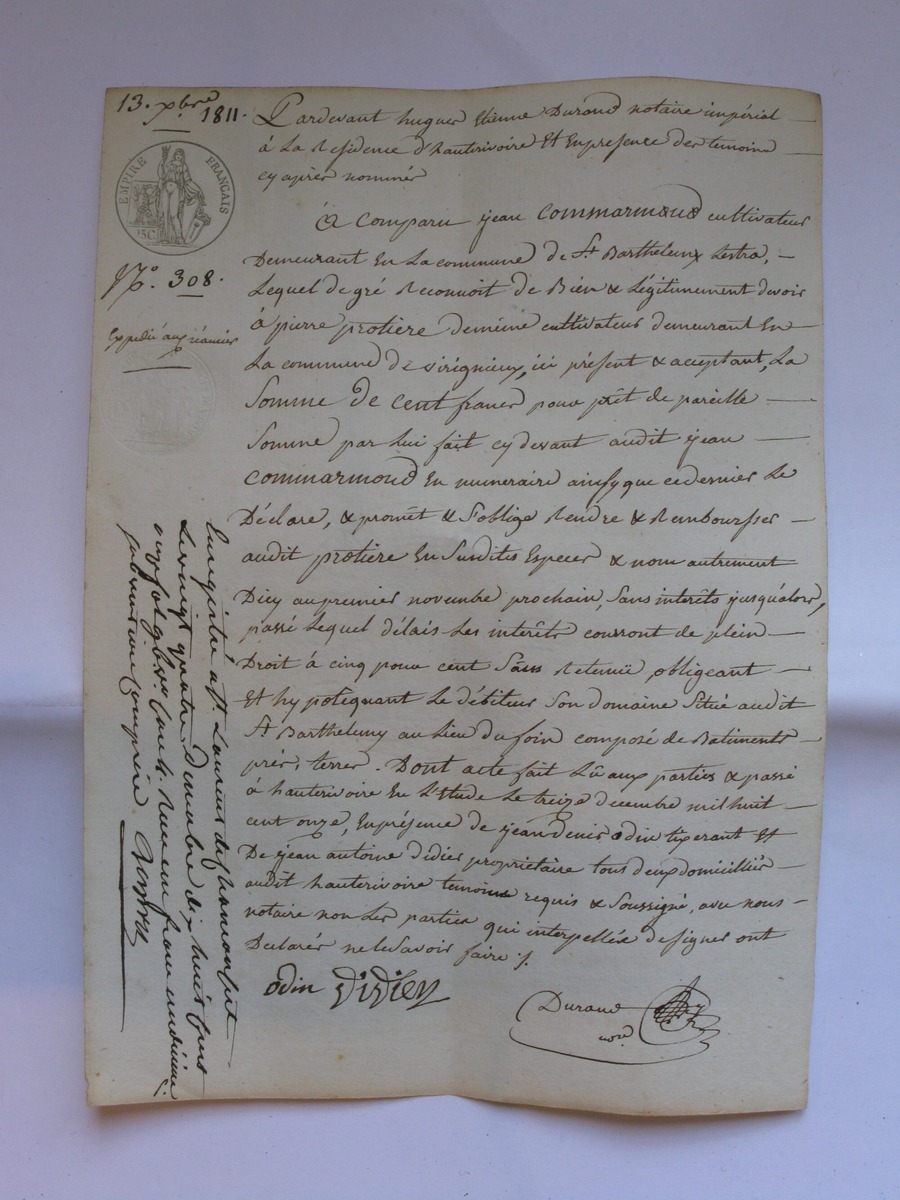 13. xbre 1811.
EMPIRE FRANÇAIS
75C
N.º 308.
Expedié au créancier
Pardevant hugues Etienne Durand notaire impérial
à La Residence d'hauterivoire Et En presence des temoins
cy après nommés
a comparu jean commarmond cultivateur
Demeurant En La commune de St Barthelemy Lestra, —
Lequel de gré Reconnoit de Bien & Légitimement devoir
à pierre protiere demême cultivateur demeurant En —
La commune de virigneux, ici présent & acceptant, La
Somme De cent francs pour prêt de pareille —
Somme par Lui fait cy devant audit jean —
commarmond En numeraire ainsy que ce dernier Le
Déclare, & promêt & S'oblige Rendre & Rembourser —
audit protiere En Susdites Especes & non autrement
Dicy au premier novembre prochain, Sans interêts jusqu'alors,
passé Lequel délais Les interêts courront de plein —
Droit à cinq pour cent Sans Retenüe obligeant —
Et hypotequant Le débiteur Son domaine Situé audit
St Barthelemy au Lieu du foin composé de Batiments
près, terres. Dont acte fait Lû aux parties & passé
à hauterivoire En L'Etude Le treize decembre mil huit —
cent onze, En présence de jean denis odin tixerant Et
De jean antoine didier propriétaire tous deux domiciliés
audit hauterivoire temoins requis & Soussigné, avec nous —
notaire non Les parties qui interpellées de signer ont
Declarés ne le Savoir faire ./.
odin Didier
Durand
nore
Enregistré a St Laurent de chamousset
Le vingt quatre decembre dix huit cens
onze fol Reçu un franc un dixième
Subvention comprise